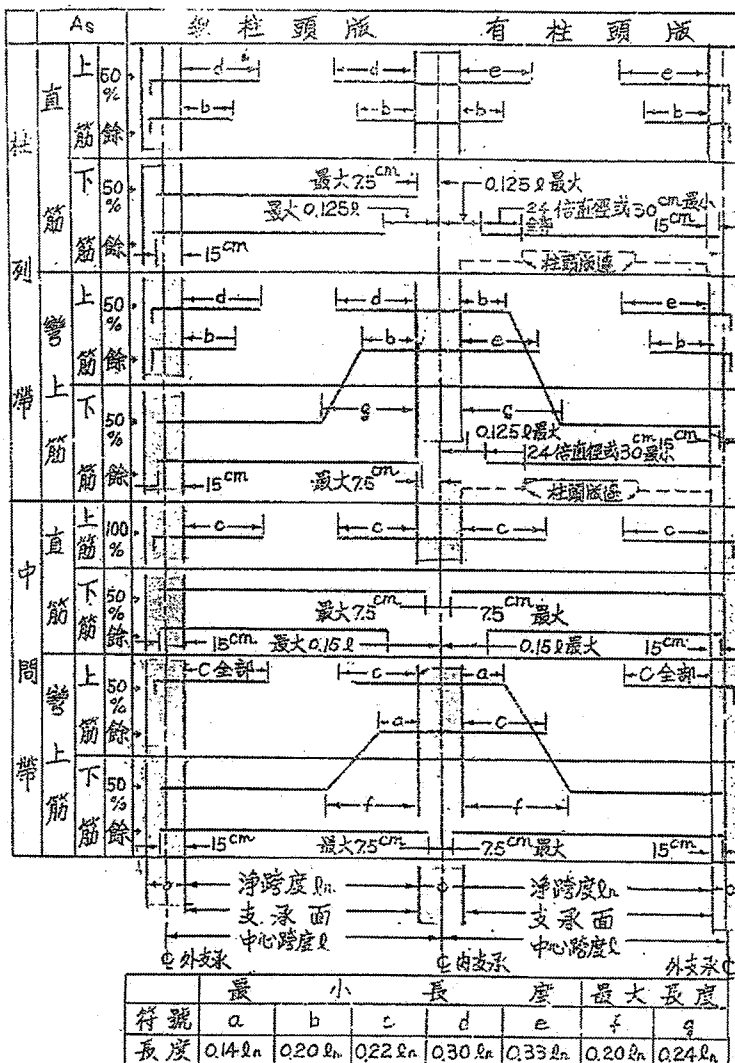 As 無柱頭版 有柱頭版
柱列帶
直筋
上筋 50% d d e e
餘 b b b b
下筋 50% 最大7.5cm 0.125ℓ最大
最大0.125ℓ 24倍直徑或30cm最小
餘 15cm 15cm
柱頭版邊
彎上筋
上筋 50% d d b e
餘 b b e b
下筋 50% g g
0.125ℓ最大 15cm
24倍直徑或30cm最小
餘 15cm 最大7.5cm
柱頭版邊
中間帶
直筋
上筋 100% c c c c
下筋 50% 最大7.5cm 7.5cm最大
餘 15cm 最大0.15ℓ 0.15ℓ最大 15cm
彎上筋
上筋 50% C全部 c a C全部
餘 a c
下筋 50% f f
餘 15cm 最大7.5cm 7.5cm最大 15cm
淨跨度ℓn 淨跨度ℓn
支承面 支承面
中心跨度ℓ 中心跨度ℓ
℄外支承 ℄內支承 外支承℄
最小長度 最大長度
符號 a b c d e f g
長度 0.14ℓn 0.20ℓn 0.22ℓn 0.30ℓn 0.33ℓn 0.20ℓn 0.24ℓn